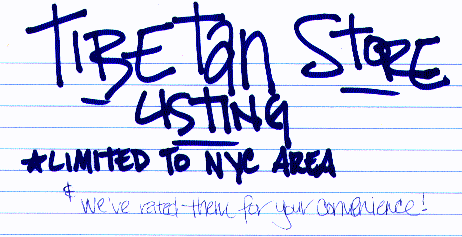 TIBETan STORE
LISTING
★LIMITED TO NYC AREA
¢ we've rated them for your convenience!